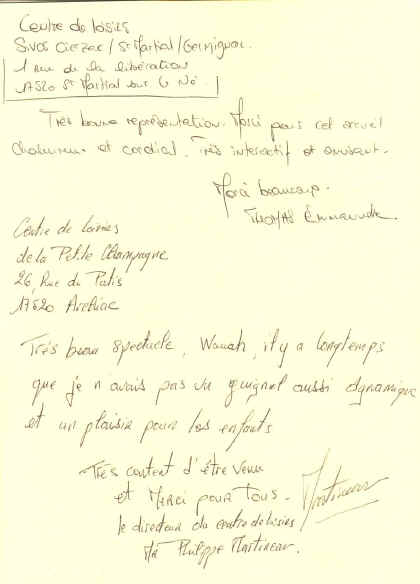 Centre de loisirs
Sivos Cierzac/St Martial/Germignac.
1 rue de la libération
17520 St Martial sur le Né.
Très bonne représentation. Merci pour cet accueil
chaleureux et cordial. Très interactif et amusant.
Merci beaucoup.
Emmanuelle.
Centre de loisirs
de la Petite Champagne
26, Rue du Patis
17520 Archiac
Très beau spectacle, Wouah, il y a longtemps
que je n'avais pas vu guignol aussi dynamique
et un plaisir pour les enfants
Très content d'être venu
et Merci pour Tous.
le directeur du centre de loisirs
Mr Philippe Martineau.
Martineau